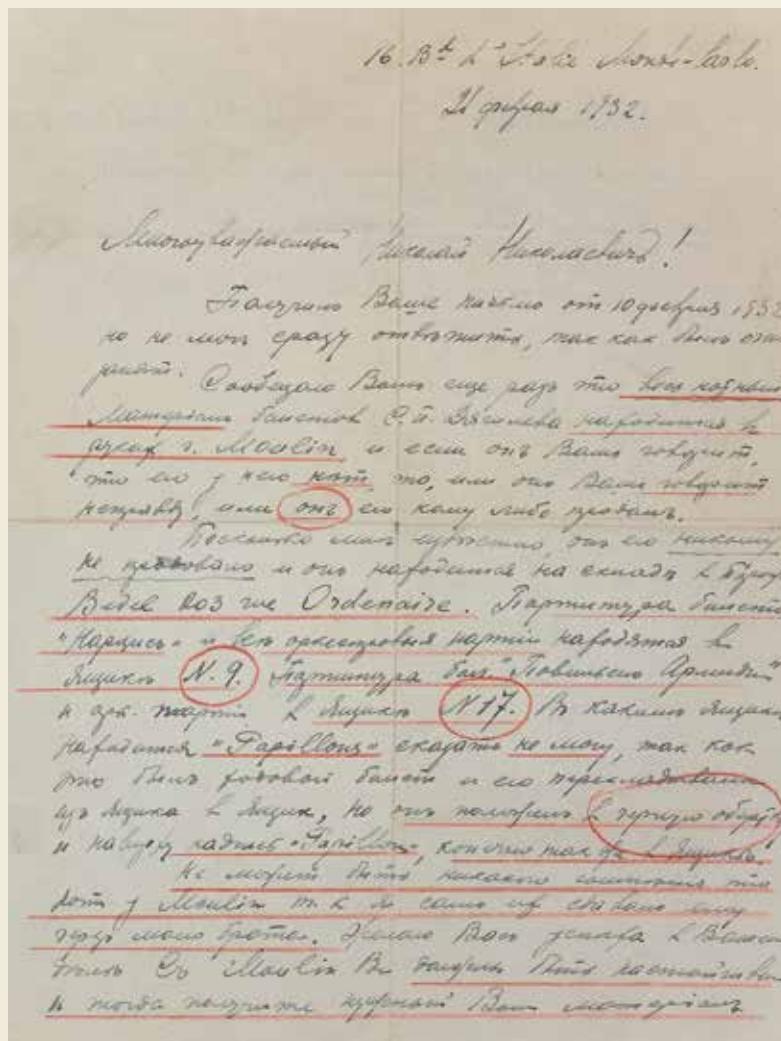 16. Bd d'Italie Monte-Carlo.
21 февраля 1932.
Многоуважаемый Николай Николаевичъ!
Получилъ Ваше письмо от 10 февраля 1932
но не могъ сразу отвѣтить, такъ как былъ очень
занят.
Сообщаю Вамъ еще разъ что весь нотный
Матерiалъ балетовъ С. П. Дягилева находится в
руках г. Moulin и если онъ Вамъ говорит,
что его у него нѣт то, или онъ Вамъ говорит
неправду, или онъ его кому либо продалъ.
Поскольку мнѣ извѣстно, онъ его никому
не и онъ находится на складѣ в
Bedel rue Ordenaire. Партитура балета
"Нарцисъ" и всѣ оркестровыя партiи находятся в
Ящикѣ N. 9. Партитура бал. "Павильонъ Армиды"
и орк. партiи в Ящикѣ N 17. Въ какомъ Ящикѣ
находится "Papillons" сказать не могу, так как
это былъ ходовой балетъ и его перекладывали
изъ Ящика в Ящик, но онъ в черную
и "Papillon", конечно так же в Ящикѣ.
Не может быть никакого сомнѣнiя что
у Moulin т. к. я самъ их сдавалъ ему
черезъ моего брата. Желаю Вамъ успѣха в Вашемъ
Съ Moulin Вы должны быть
и тогда получите нужный Вам матерiалъ